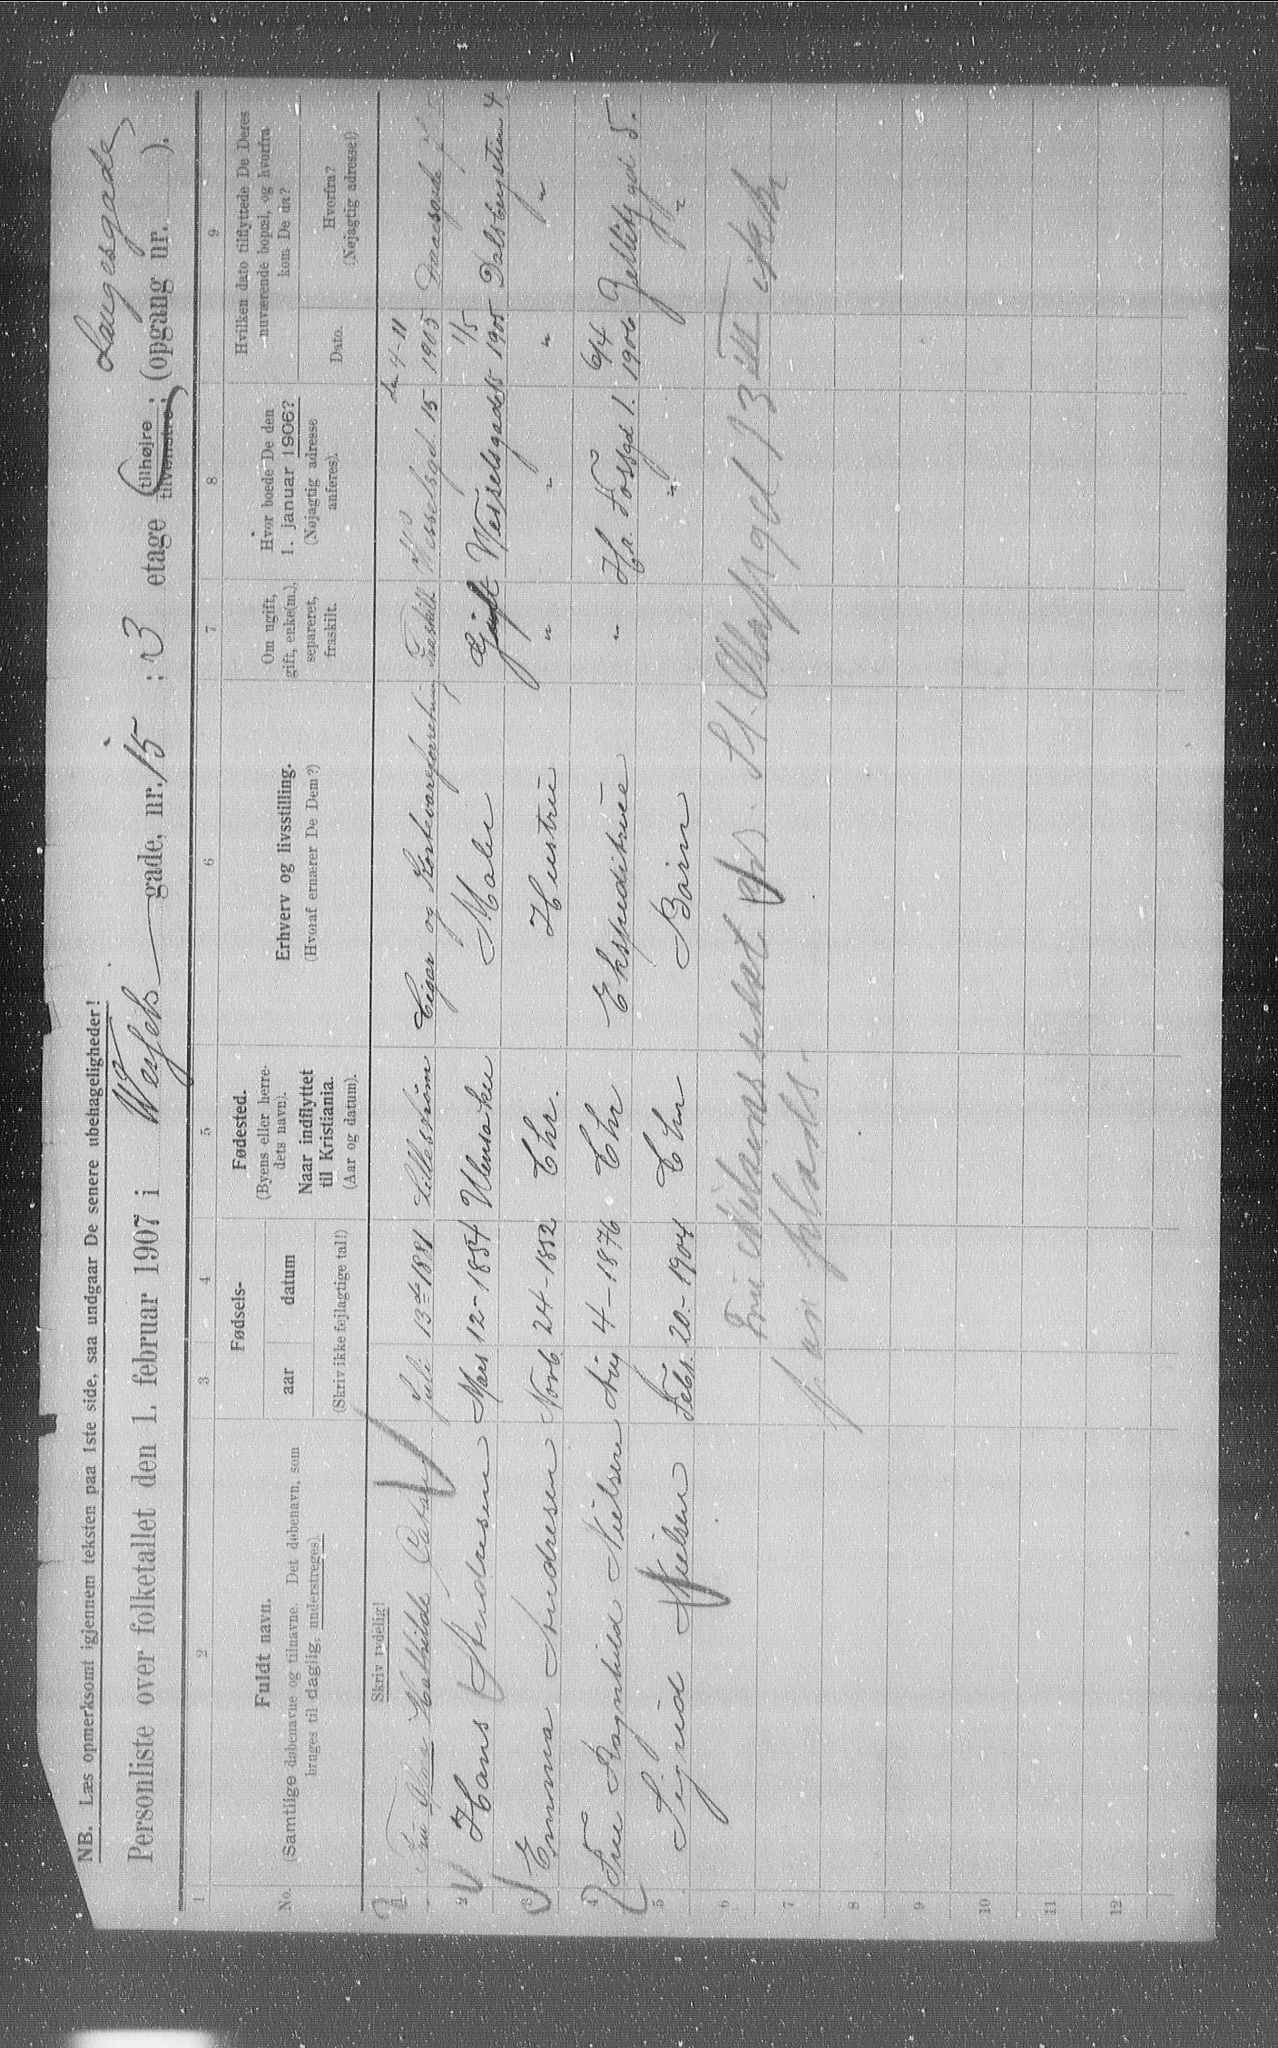 NB. Læs opmerksomt igjennem teksten paa 1ste side, saa undgaar De senere ubehageligheder!
Langesgade
Personliste over folketallet den 1. februar 1907 i Wessels gade, nr. 15 ; 3 etage tilhøjre tilvenstre ; (opgang nr. ).
1 2 3 4 5 6 7 8 9
No. Fuldt navn. (Samtlige døbenavne og tilnavne. Det døbenavn, som bruges til daglig, understreges).
Skriv tydelig!
Fødsels- aar datum (Skriv ikke fejlagtige tal!)
Fødested. (Byens eller herredets navn). Naar indflyttet til Kristiania. (Aar og datum).
Erhverv og livsstilling. (Hvoraf ernærer De Dem?)
Om ugift, gift, enke(m.), separeret, fraskilt.
Hvor boede De den 1. januar 1906? (Nøjagtig adresse anføres).
Hvilken dato tilflyttede De Deres nuværende bopæl, og hvorfra kom De da?
Dato. Hvorfra? (Nøjagtig adresse!)
1 Fru Mathilde Juli 13de 1881 Lillestrøm Cigar og Kortevareforretning Fraskilt Wesselsgd. 15 den 4-11 1905
2 Hans Andresen Mars 12-1854 Ulensaker Maler Gift Wesselsgade 15 1/5 1905 Dalsbergstien 4
3 Emma Andresen Novb. 24-1852 Chr. Hustru " " " "
4 Fru Ragnhild Nielsen Aug 4-1876 Chr Ekspeditrice " Hr. Fossgd 1. 6/4 1906 Zettlitzgd. 5.
5 Sigrid Nielsen Febr. 20.-1904 Chr Barn " "
6 Fru Nielsens St. Olafsgd
7
8
9
10
11
12